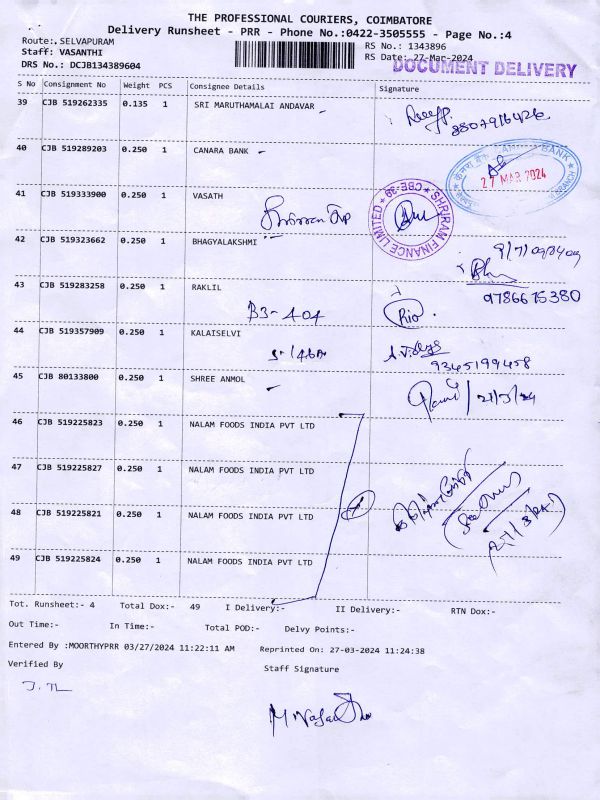 THE PROFESSIONAL COURIERS, COIMBATORE
Delivery Runsheet - PRR - Phone No.:0422-3505555 - Page No.:4
Route:. SELVAPURAM
RS No.: 1343896
Staff: VASANTHI
RS Date: 27-Mar-2024
DRS No.: DCJB134389604
DOCUMENT DELIVERY
S No Consignment No Weight PCS Consignee Details Signature
39 CJB 519262335 0.135 1 SRI MARUTHAMALAI ANDAVAR
8807916426
40 CJB 519289203 0.250 1 CANARA BANK
27 MAR 2024
41 CJB 519333900 0.250 1 VASATH
SHRIRAM FINANCE LIMITED * CBE-39 *
42 CJB 519323662 0.250 1 BHAGYALAKSHMI
43 CJB 519283258 0.250 1 RAKLIL
9786675380
B3-404
Rio
44 CJB 519357909 0.250 1 KALAISELVI
9345199458
45 CJB 80133800 0.250 1 SHREE ANMOL
46 CJB 519225823 0.250 1 NALAM FOODS INDIA PVT LTD
47 CJB 519225827 0.250 1 NALAM FOODS INDIA PVT LTD
48 CJB 519225821 0.250 1 NALAM FOODS INDIA PVT LTD
49 CJB 519225824 0.250 1 NALAM FOODS INDIA PVT LTD
Tot. Runsheet:- 4 Total Dox:- 49 I Delivery:- II Delivery:- RTN Dox:-
Out Time:- In Time:- Total POD:- Delvy Points:-
Entered By :MOORTHYPRR 03/27/2024 11:22:11 AM Reprinted On: 27-03-2024 11:24:38
Verified By Staff Signature